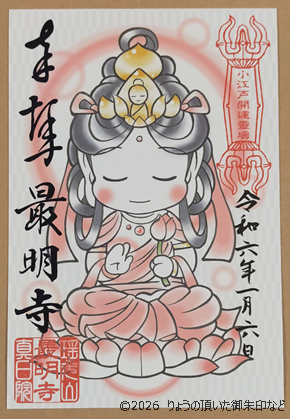 奉拝
最明寺
小江戸開運霊場
令和六年一月六日
最明寺
©2026 りょうの頂いた御朱印など